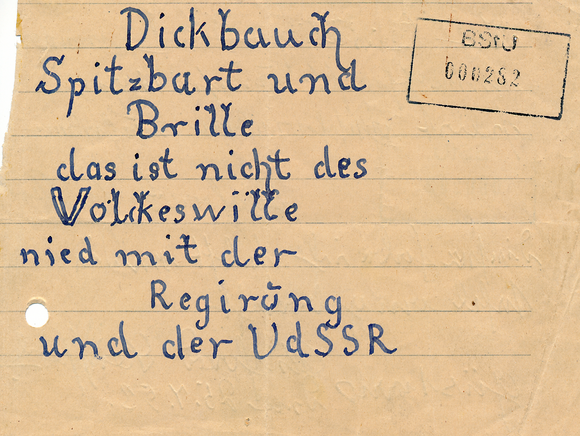 Dickbauch
BStU
000282
Spitzbart und
Brille
das ist nicht des
Volkeswille
nied mit der
Regirŭng
und der UdSSR